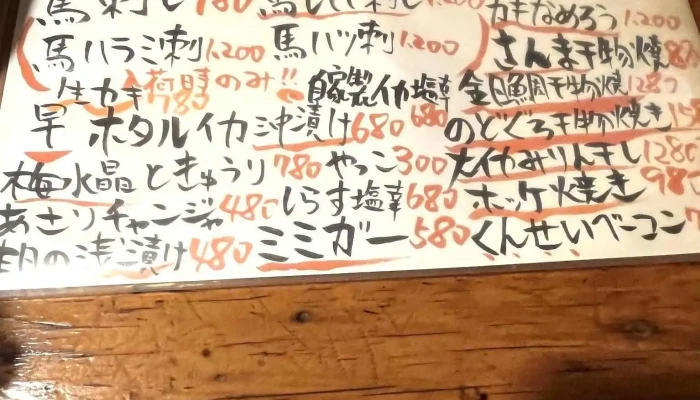 馬刺し 780
馬ハラミ刺 1.200 馬ハツ刺 1.200
生カキ 入荷時のみ!! 780
自家製イカ塩辛 680
早 ホタルイカ沖漬け 680
梅水晶ときゅうり 780 やっこ 300
あさりチャンジャ 480 しらす塩辛 680
の浅漬け 480 ミミガー 580
カキなめろう 1.200
さんま干物焼
金目鯛干物焼 1280
のどぐろ干物焼き
大イカみりん干し 1280
ホッケ焼き 98
くんせいベーコン